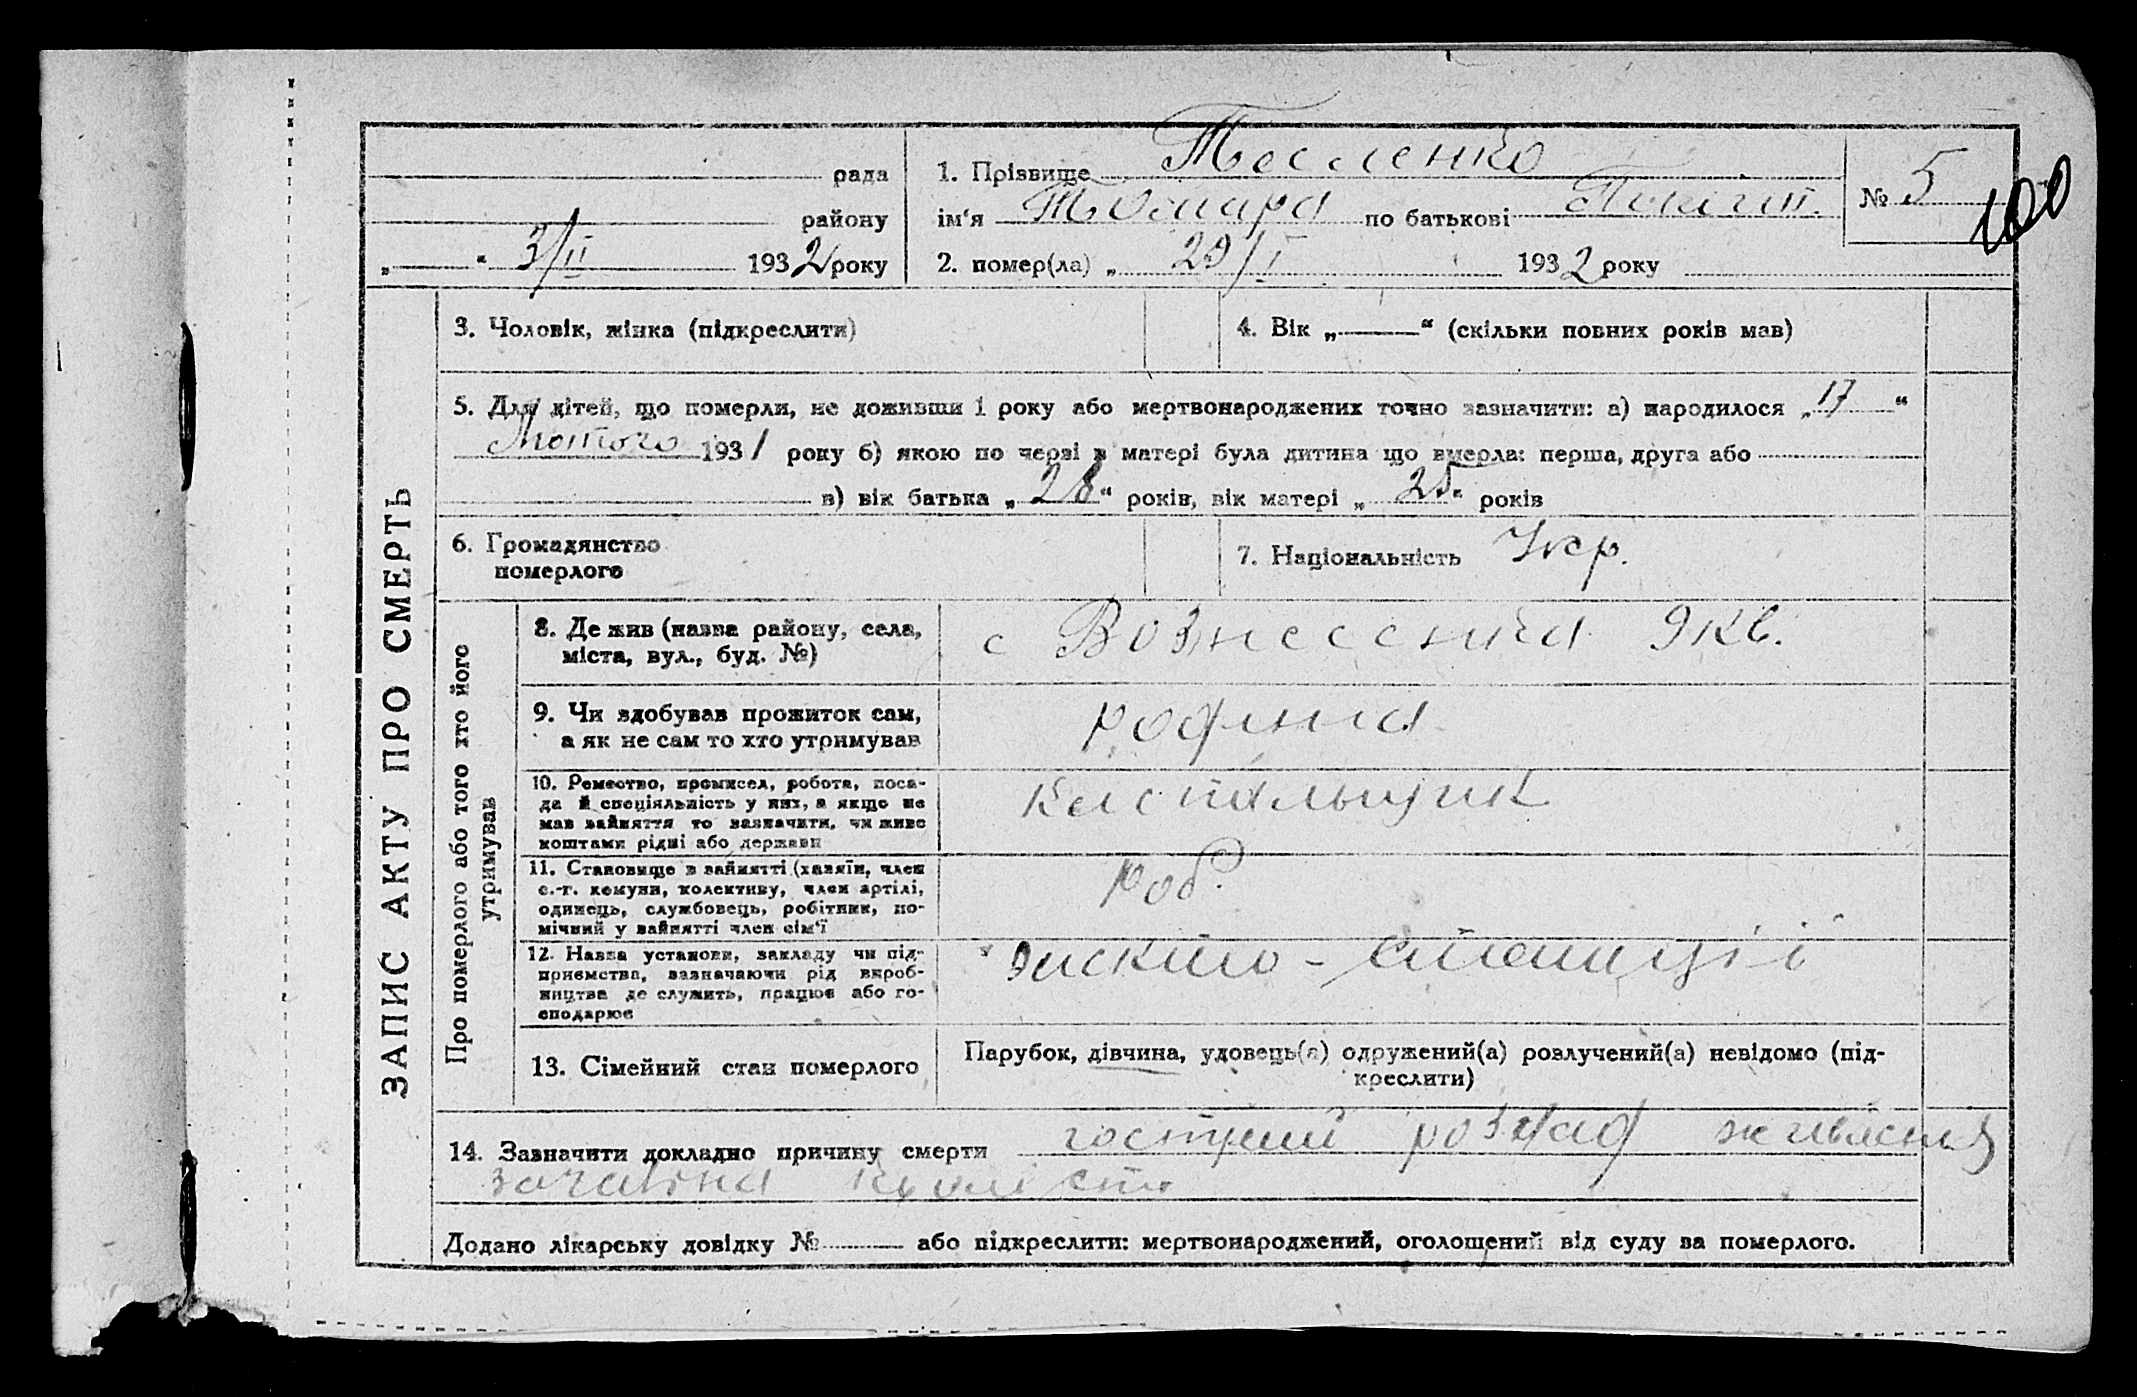 рада
району
„ “ 3/II 1932 року
1. Прізвище Тесленко
ім‘я Тамара по батькові
2. помер(ла) „ 29/I 1932 року
№ 5
100
3. Чоловік, жінка (підкреслити)
4. Вік „ “ (скільки повних років мав)
5. Для дітей, що померли, не доживши 1 року або мертвонароджених точно зазначити: а) народилося „ 17 “
Лютого 1931 року б) якою по черзі в матері була дитина що вмерла: перша, друга або
в) вік батька „ 28 “ років, вік матері „ 25 “ років
6. Громадянство
померлого
7. Національність Укр.
ЗАПИС АКТУ ПРО СМЕРТЬ
Про померлого або того хто його
утримував
8. Де жив (назва району, села,
міста, вул., буд. №)
с Вознесенка 9 кв.
9. Чи здобував прожиток сам,
а як не сам то хто утримував
родина
10. Ремество, промисел, робота, поса-
да й спеціяльність у них, а якщо не
мав зайняття то зазначити, чи живе
коштами рідні або держави
11. Становище в зайнятті (хазяїн, член
с.-г. комуни, колективу, член артілі,
одинець, службовець, робітник, по-
мічний у зайнятті член сім‘ї
роб.
12. Назва установи, закладу чи під-
приємства, зазначаючи рід вироб-
ництва де служить, працює або го-
сподарює
станції
13. Сімейний стан померлого
Парубок, дівчина, удовець(а) одружений(а) розлучений(а) невідомо (під-
креслити)
14. Зазначити докладно причину смерти гострий розлад живлення
Додано лікарську довідку № або підкреслити: мертвонароджений, оголошений від суду за померлого.